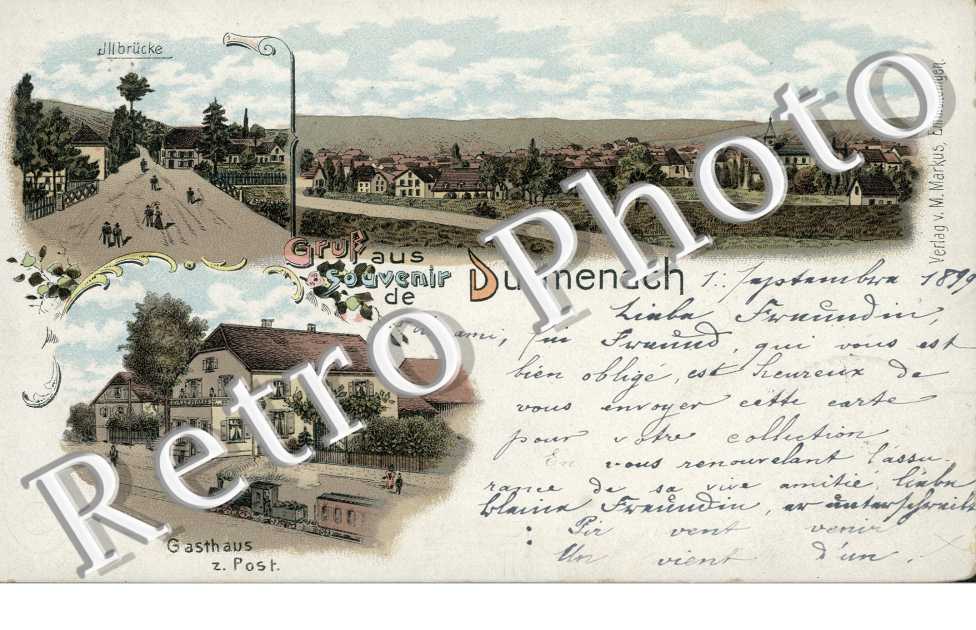 Illbrücke
Gruß aus
Souvenir de Durmenach
Verlag v. M. Markus,
1. Septembre 189
Liebe Freundin,
ami, Freund, qui vous est
bien obligé, est heureux de
vous envoyer cette carte
pour votre collection
En vous renouvelant l'assu-
rance de sa vive amitié, liebe
kleine Freundin, er unterschreibt
:
vent venir
Un vient d'un.
Gasthaus
z. Post.
Retro Photo